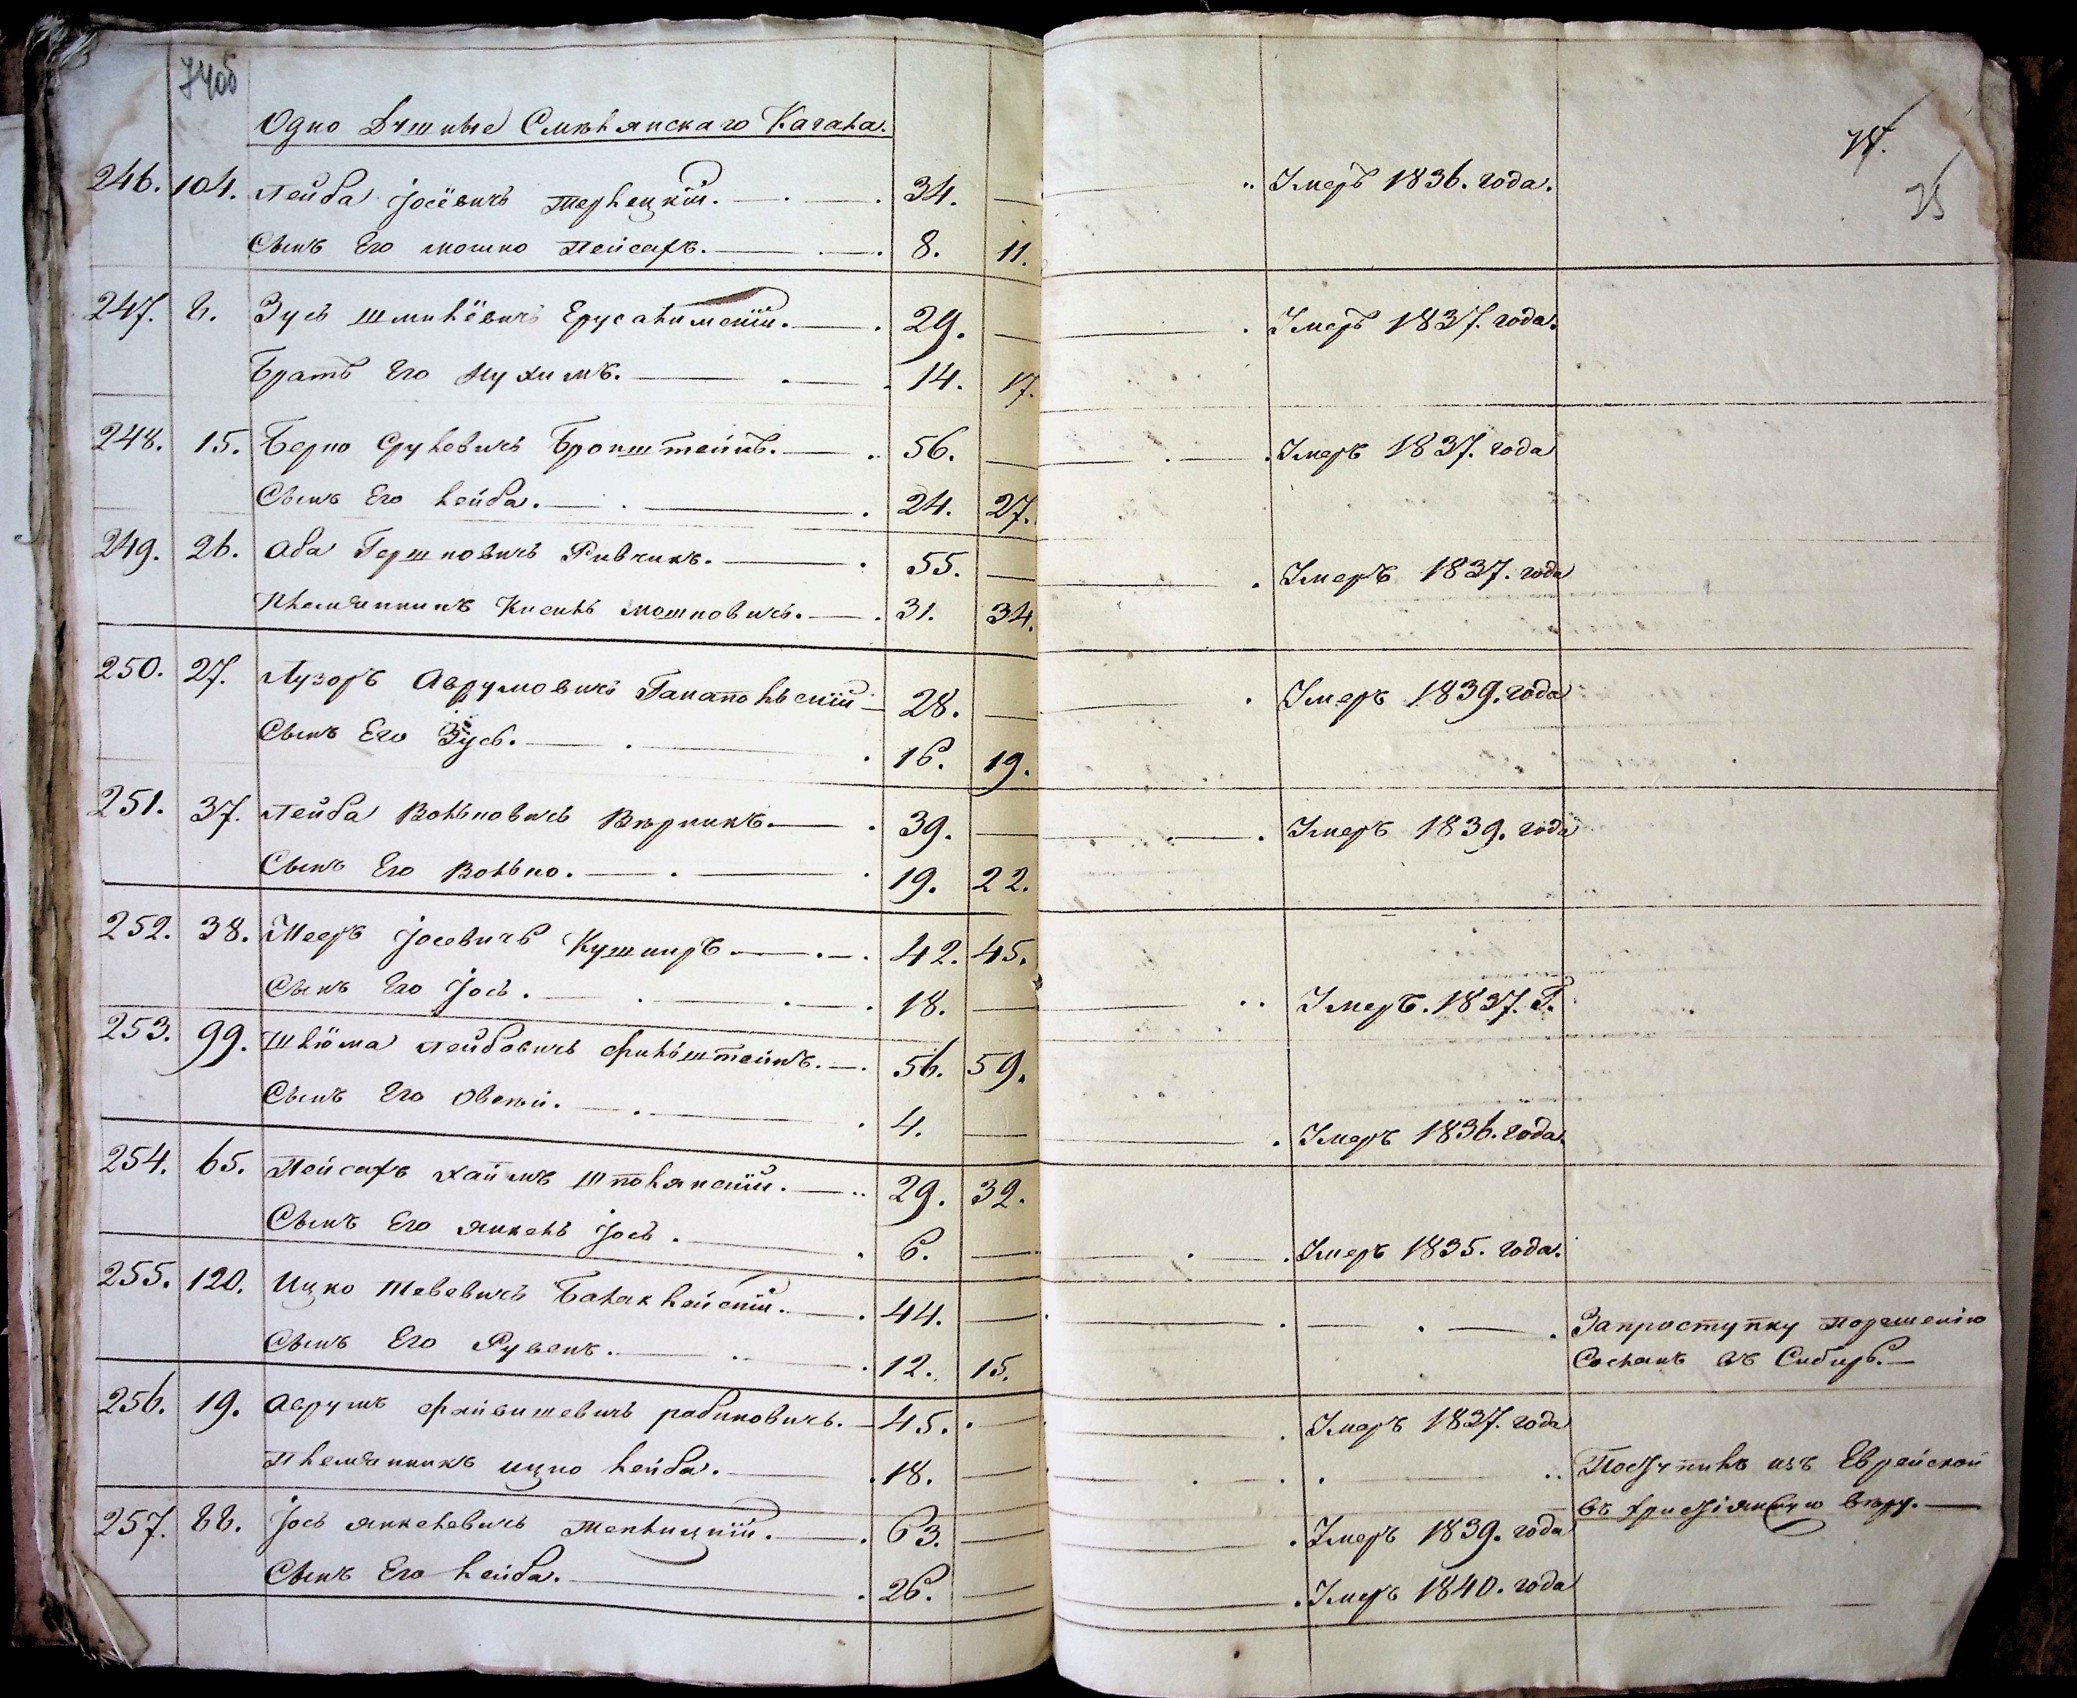 74об
Одно Душные Смѣлянскаго Кагала.
74.
75
246. 104. Лейба Іосёвичъ Терлецкій. 34. — Умеръ 1836. года.
Сынъ Его мошко Пейсахъ. 8. 11.
247. 8. Зусь Шмилёвичъ Ерусалимскій. 29. — Умеръ 1837. года.
Братъ Его Нухимъ. 14. 17.
248. 15. Берко Срулевичъ Бронштейнъ. 56. — Умеръ 1837. года
Сынъ Его Лейба. 24. 27.
249. 26. Аба Гершковичъ Ривчикъ. 55. — Умеръ 1837. года
Племянникъ Кисиль Мошковичъ. 31. 34.
250. 27. Лузоръ Аврумовичъ Гапапольскій 28. — Умеръ 1839. года
Сынъ Его Зусь. 16. 19.
251. 37. Лейба Вольковичъ Вѣрникъ. 39. — Умеръ 1839. года
Сынъ Его Волько. 19. 22.
252. 38. Мееръ Іосевичъ Кушниръ 42. 45.
Сынъ Его Іось. 18. — Умеръ. 1837. Г.
253. 99. Шлёма Лейбовичъ Финьштейнъ. 56. 59.
Сынъ Его Овсѣй. 4. — Умеръ 1836. года.
254. 65. Пейсахъ Хаимъ Шполянскій. 29. 32.
Сынъ Его Янкель Іось. 6. — Умеръ 1835. года.
255. 120. Ицко Тевевичъ Балаклейскій. 44. — Запроступку порешенію
Сынъ Его Рувенъ. 12. 15. Сосланъ въ Сибирь.
256. 19. Аврумъ Файвишевичъ рабиновичъ. 45. — Умеръ 1837. года
Племянникъ ицко Лейба. 18. — Поступилъ изъ Еврейской
въ христіянскую вѣру.
257. 88. Іось Янкелевичъ Теплицкій. 63. — Умеръ 1839. года
Сынъ Его Лейба. 26. — Умеръ 1840. года